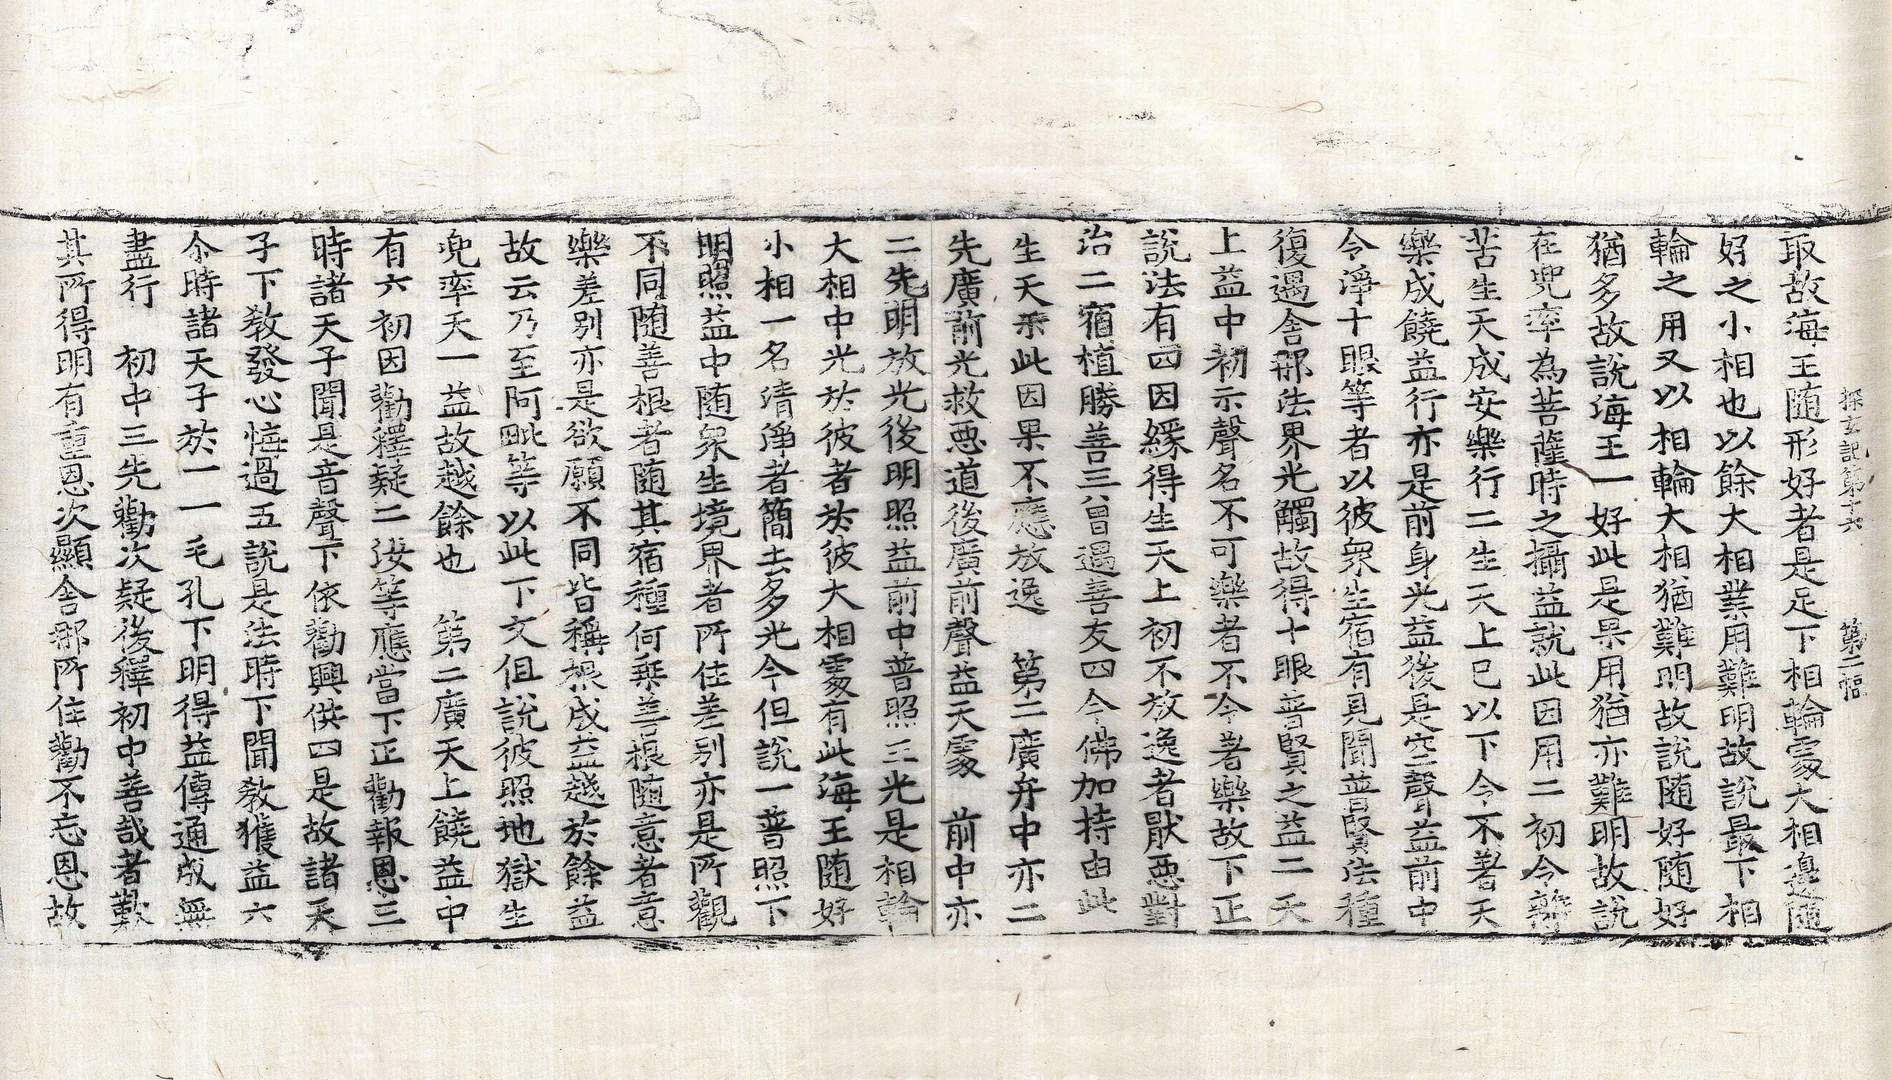 探玄記第十六　第二幅
取故海王随形好者是足下相輪䖏大相邊随
好之小相也以餘大相業用難明故說最下相
輪之用又以相輪大相猶難明故說随好随好
猶多故說海王一好此是果用猶亦難明故說
在兜率為菩薩時之攝益就此因用二初令離
苦生天成安樂行二生天上已以下令不著天
樂成饒益行亦是前身光益後是空聲益前中
令淨十眼等者以彼衆生宿有見聞普賢法種
復遇舍那法界光觸故得十眼普賢之益二天
上益中初示聲名不可樂者不令著樂故下正
說法有四因緣得生天上初不放逸者猒惡對
治二宿植勝善三曾遇善友四今佛加持由此
生天乘此因果不應放逸　第二廣弁中亦二
先廣前光救惡道後廣前聲益天䖏　前中亦
二先明放光後明照益前中普照王光是相輪
大相中光於彼者於彼大相䖏有此海王随好
小相一名清淨者簡去多光今但說一普照下
明照益中随衆生境界者所住差别亦是所觀
不同随善根者随其宿種何乘善根随意者意
樂差别亦是欲願不同皆稱根成益越於餘益
故云乃至阿毗等以此下文但說彼照地獄生
兜率天一益故越餘也　第二廣天上饒益中
有六初因勸釋疑二汝等應當下正勸報恩三
時諸天子聞是音聲下依勸興供四是故諸天
子下教發心悔過五說是法時下聞教獲益六
尒時諸天子於一一毛孔下明得益傳通成無
盡行　初中三先勸次疑後釋初中善哉者歎
其所得明有重恩次顯舍那所住勸不忘恩故